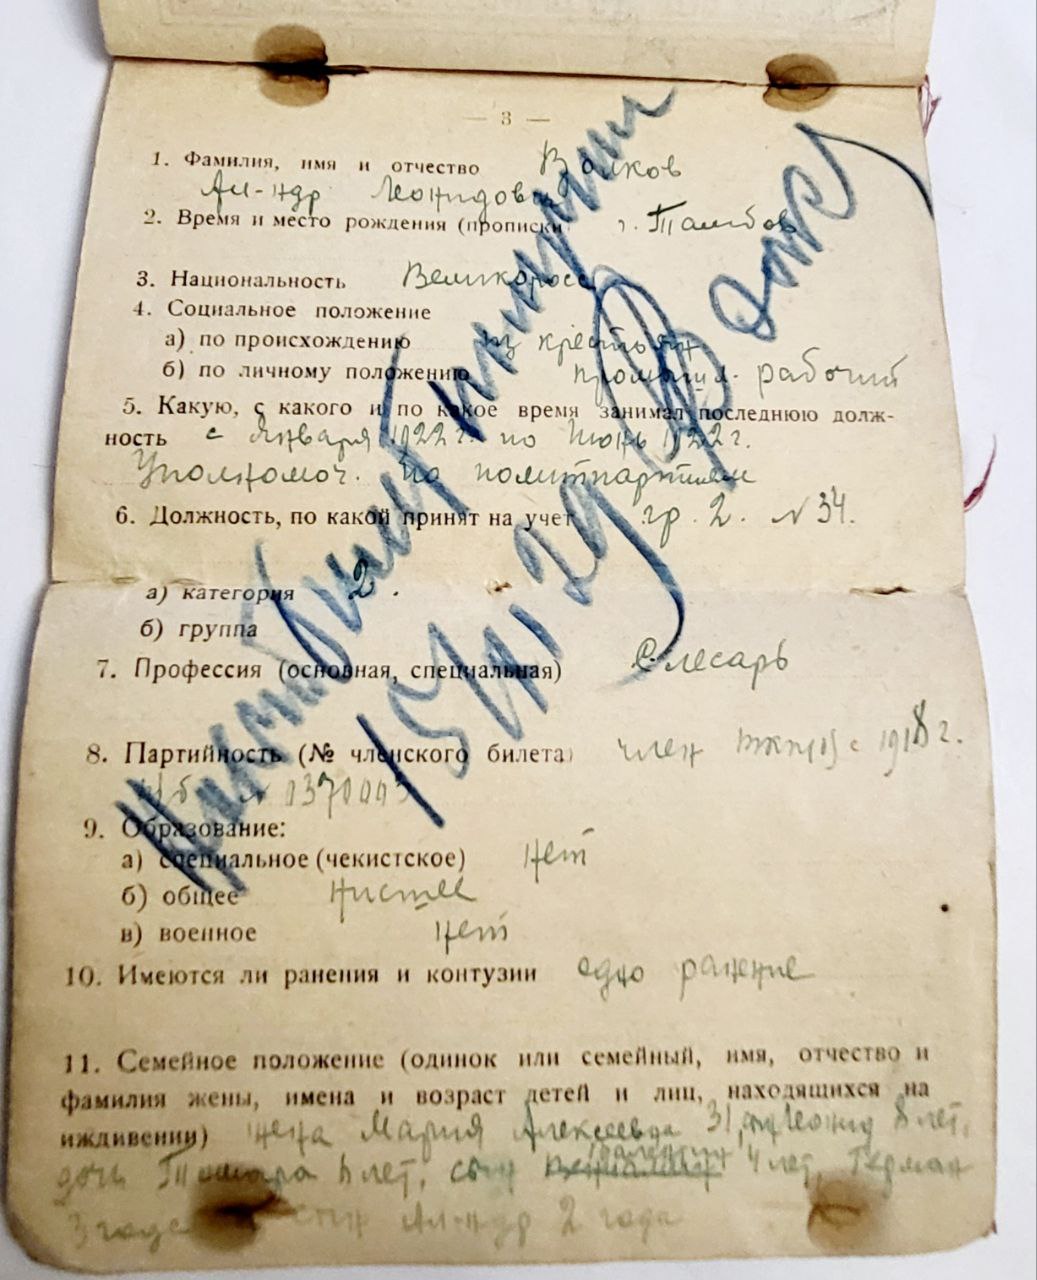 — 3 —
1. Фамилия, имя и отчество Волков
Ал-ндр Леонидович
2. Время и место рождения (прописки г. Тамбов
3. Национальность Великоросс
4. Социальное положение
а) по происхождению из крестьян
б) по личному положению промышл. рабочий
5. Какую, с какого и по какое время занимал последнюю долж-
ность с Января 1922 г. по Июнь 1922 г.
Уполномоч. по политпартиям
6. Должность, по какой принят на учет гр. 2. № 34.
а) категория 2.
б) группа
7. Профессия (основная, специальная) Слесарь
8. Партийность (№ членского билета) член ВКП(б) с 1918 г.
№
9. Образование:
а) специальное (чекистское) нет
б) общее нисшее
в) военное нет
10. Имеются ли ранения и контузии одно ранение
11. Семейное положение (одинок или семейный, имя, отчество и
фамилия жены, имена и возраст детей и лиц, находящихся на
иждивении) жена Мария Алексеевна 31, Леонид 8 лет,
дочь Тамара лет, сын Валентин 4 лет, Герман
3 года сын Ал-ндр 2 года